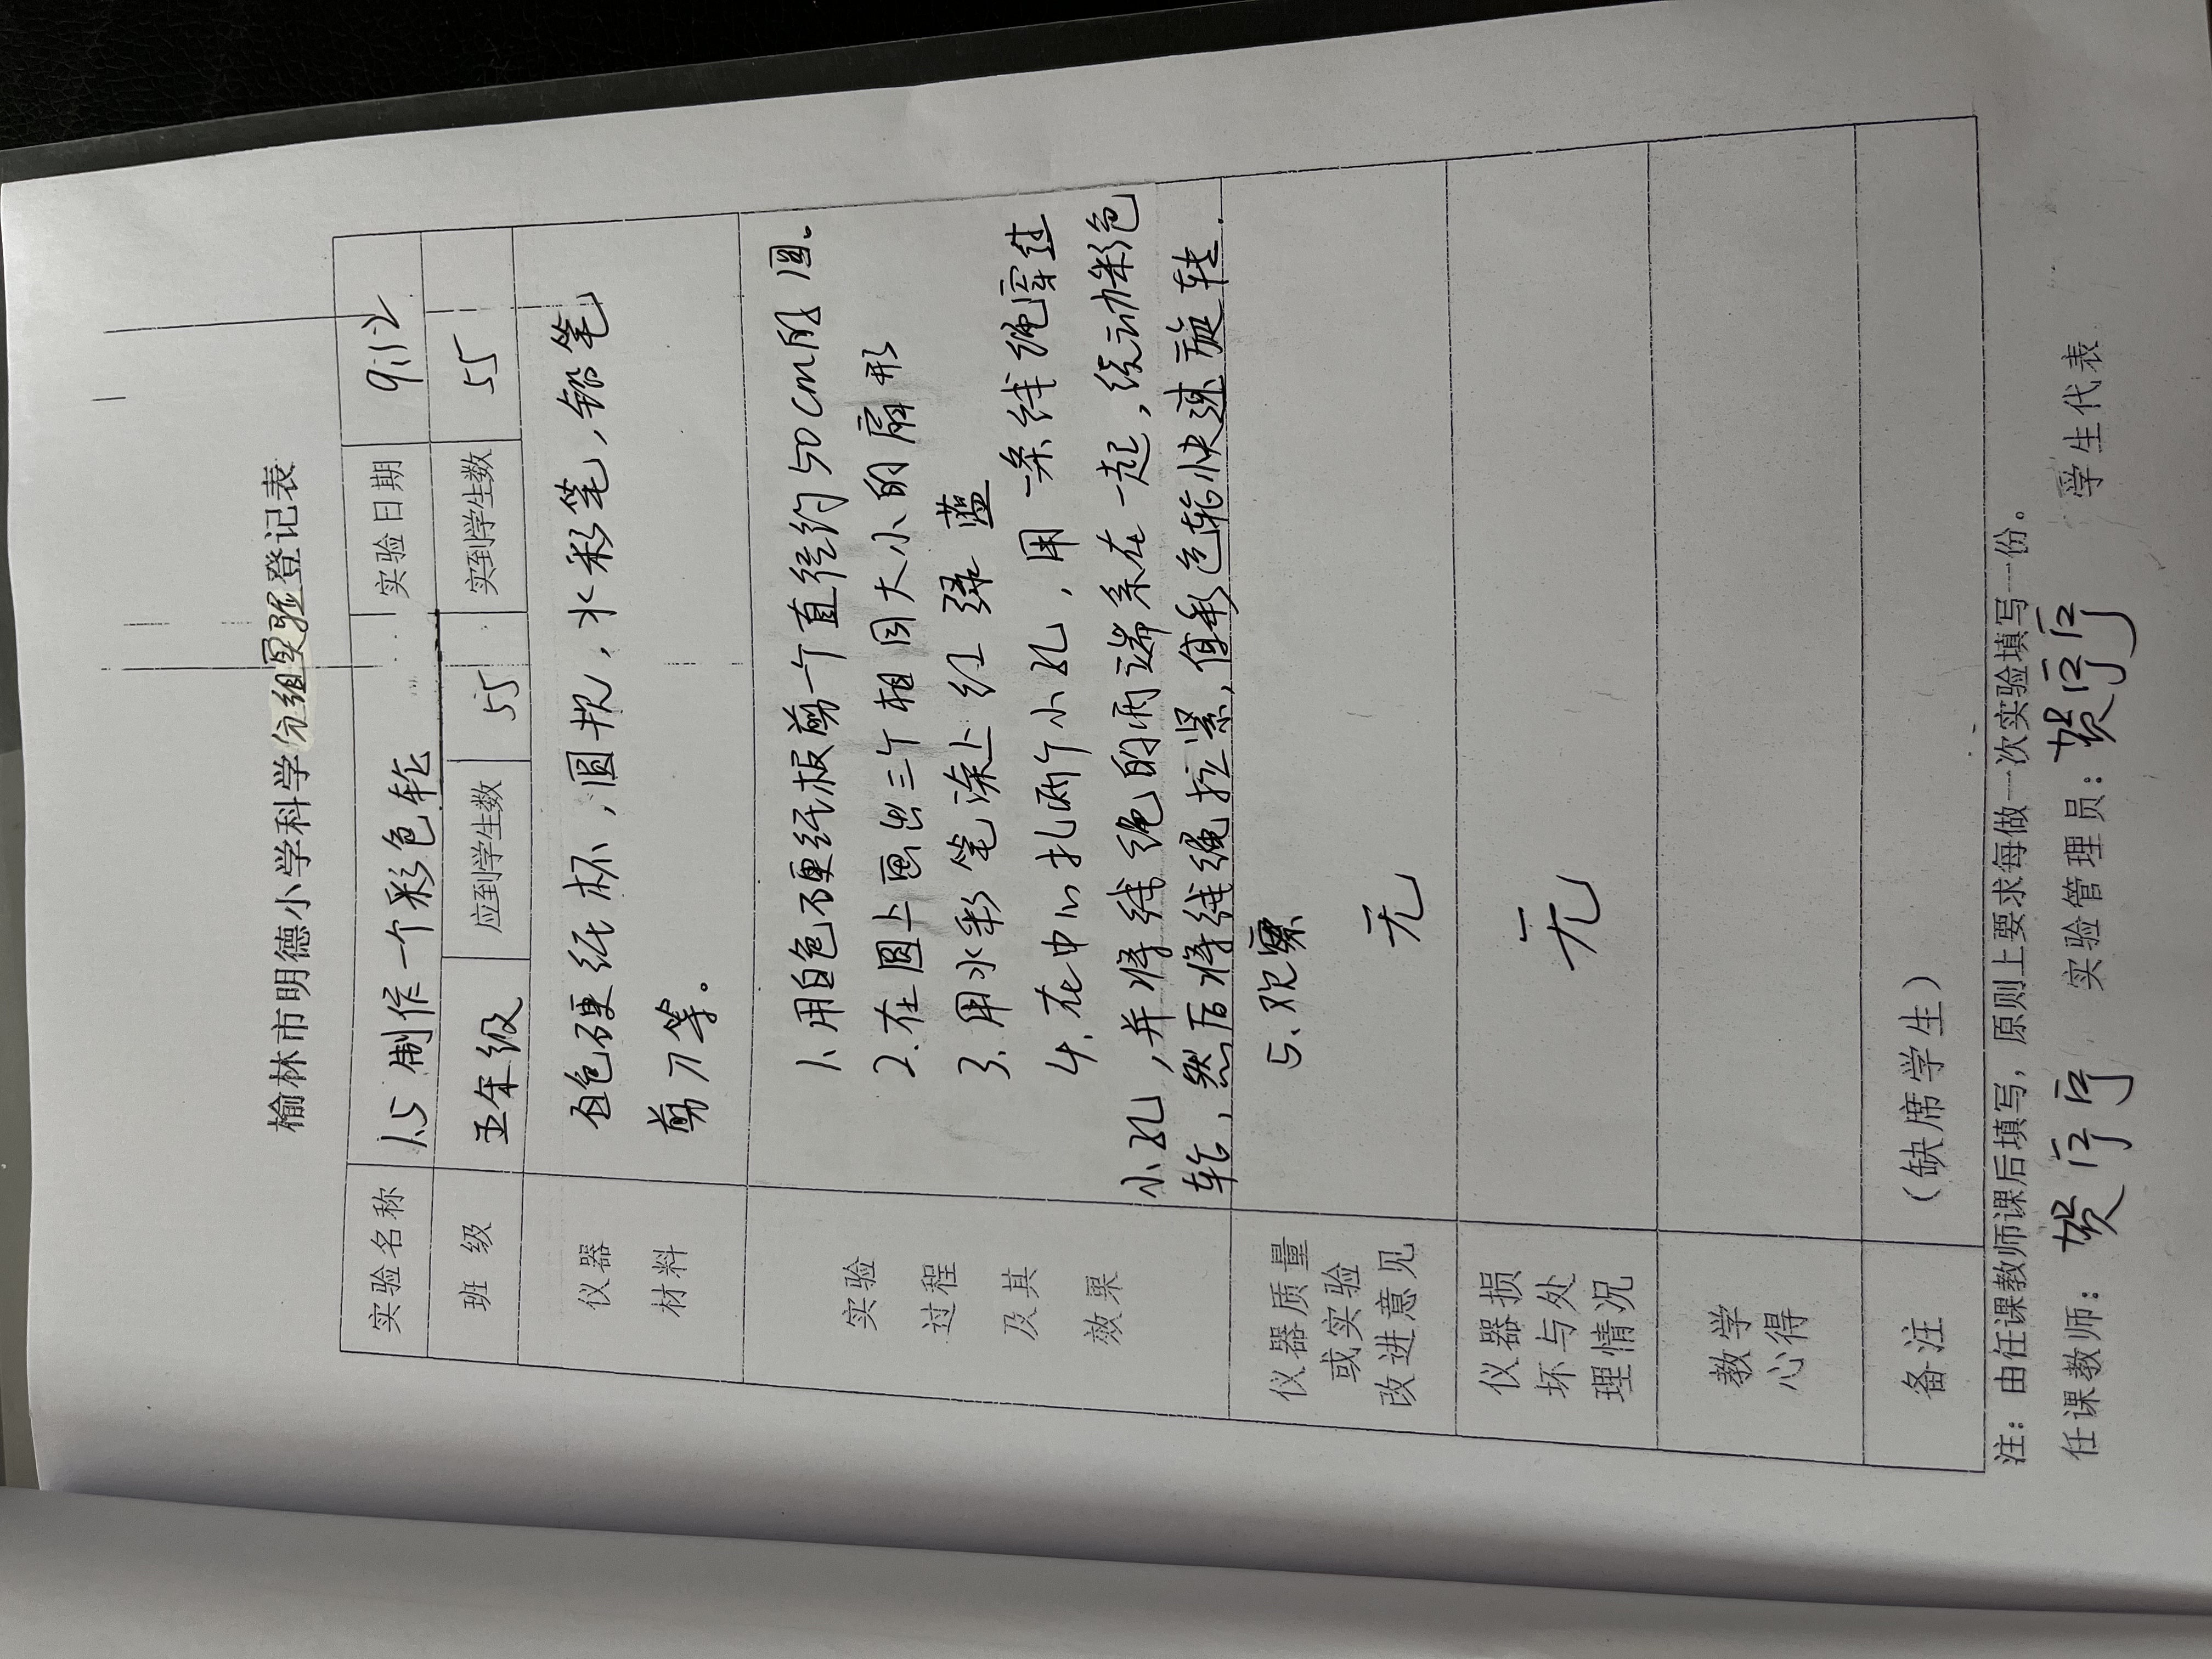 榆林市明德小学科学分组实验登记表
实验名称 1.5 制作一个彩色轮 实验日期 9.12
班 级 五年级 应到学生数 55 实到学生数 55
仪器 白色硬纸杯，圆规，水彩笔，铅笔
材料 剪刀等。
实验
过程
及其
效果
1.用白色硬纸板剪一个直径约50cm的圆。
2.在圆上画出三个相同大小的扇形
3.用水彩笔涂上红 绿 蓝
4.在中心扎两个小孔，用一条线绳穿过
小孔，并将线绳的两端系在一起，绕动彩色
轮，然后将线绳拉紧，使彩色轮快速旋转.
5.观察
仪器质量
或实验
改进意见
无
仪器损
坏与处
理情况
无
教学
心得
备注 （缺席学生）
注：由任课教师课后填写，原则上要求每做一次实验填写一份。
任课教师：贺序序 实验管理员：贺序序 学生代表